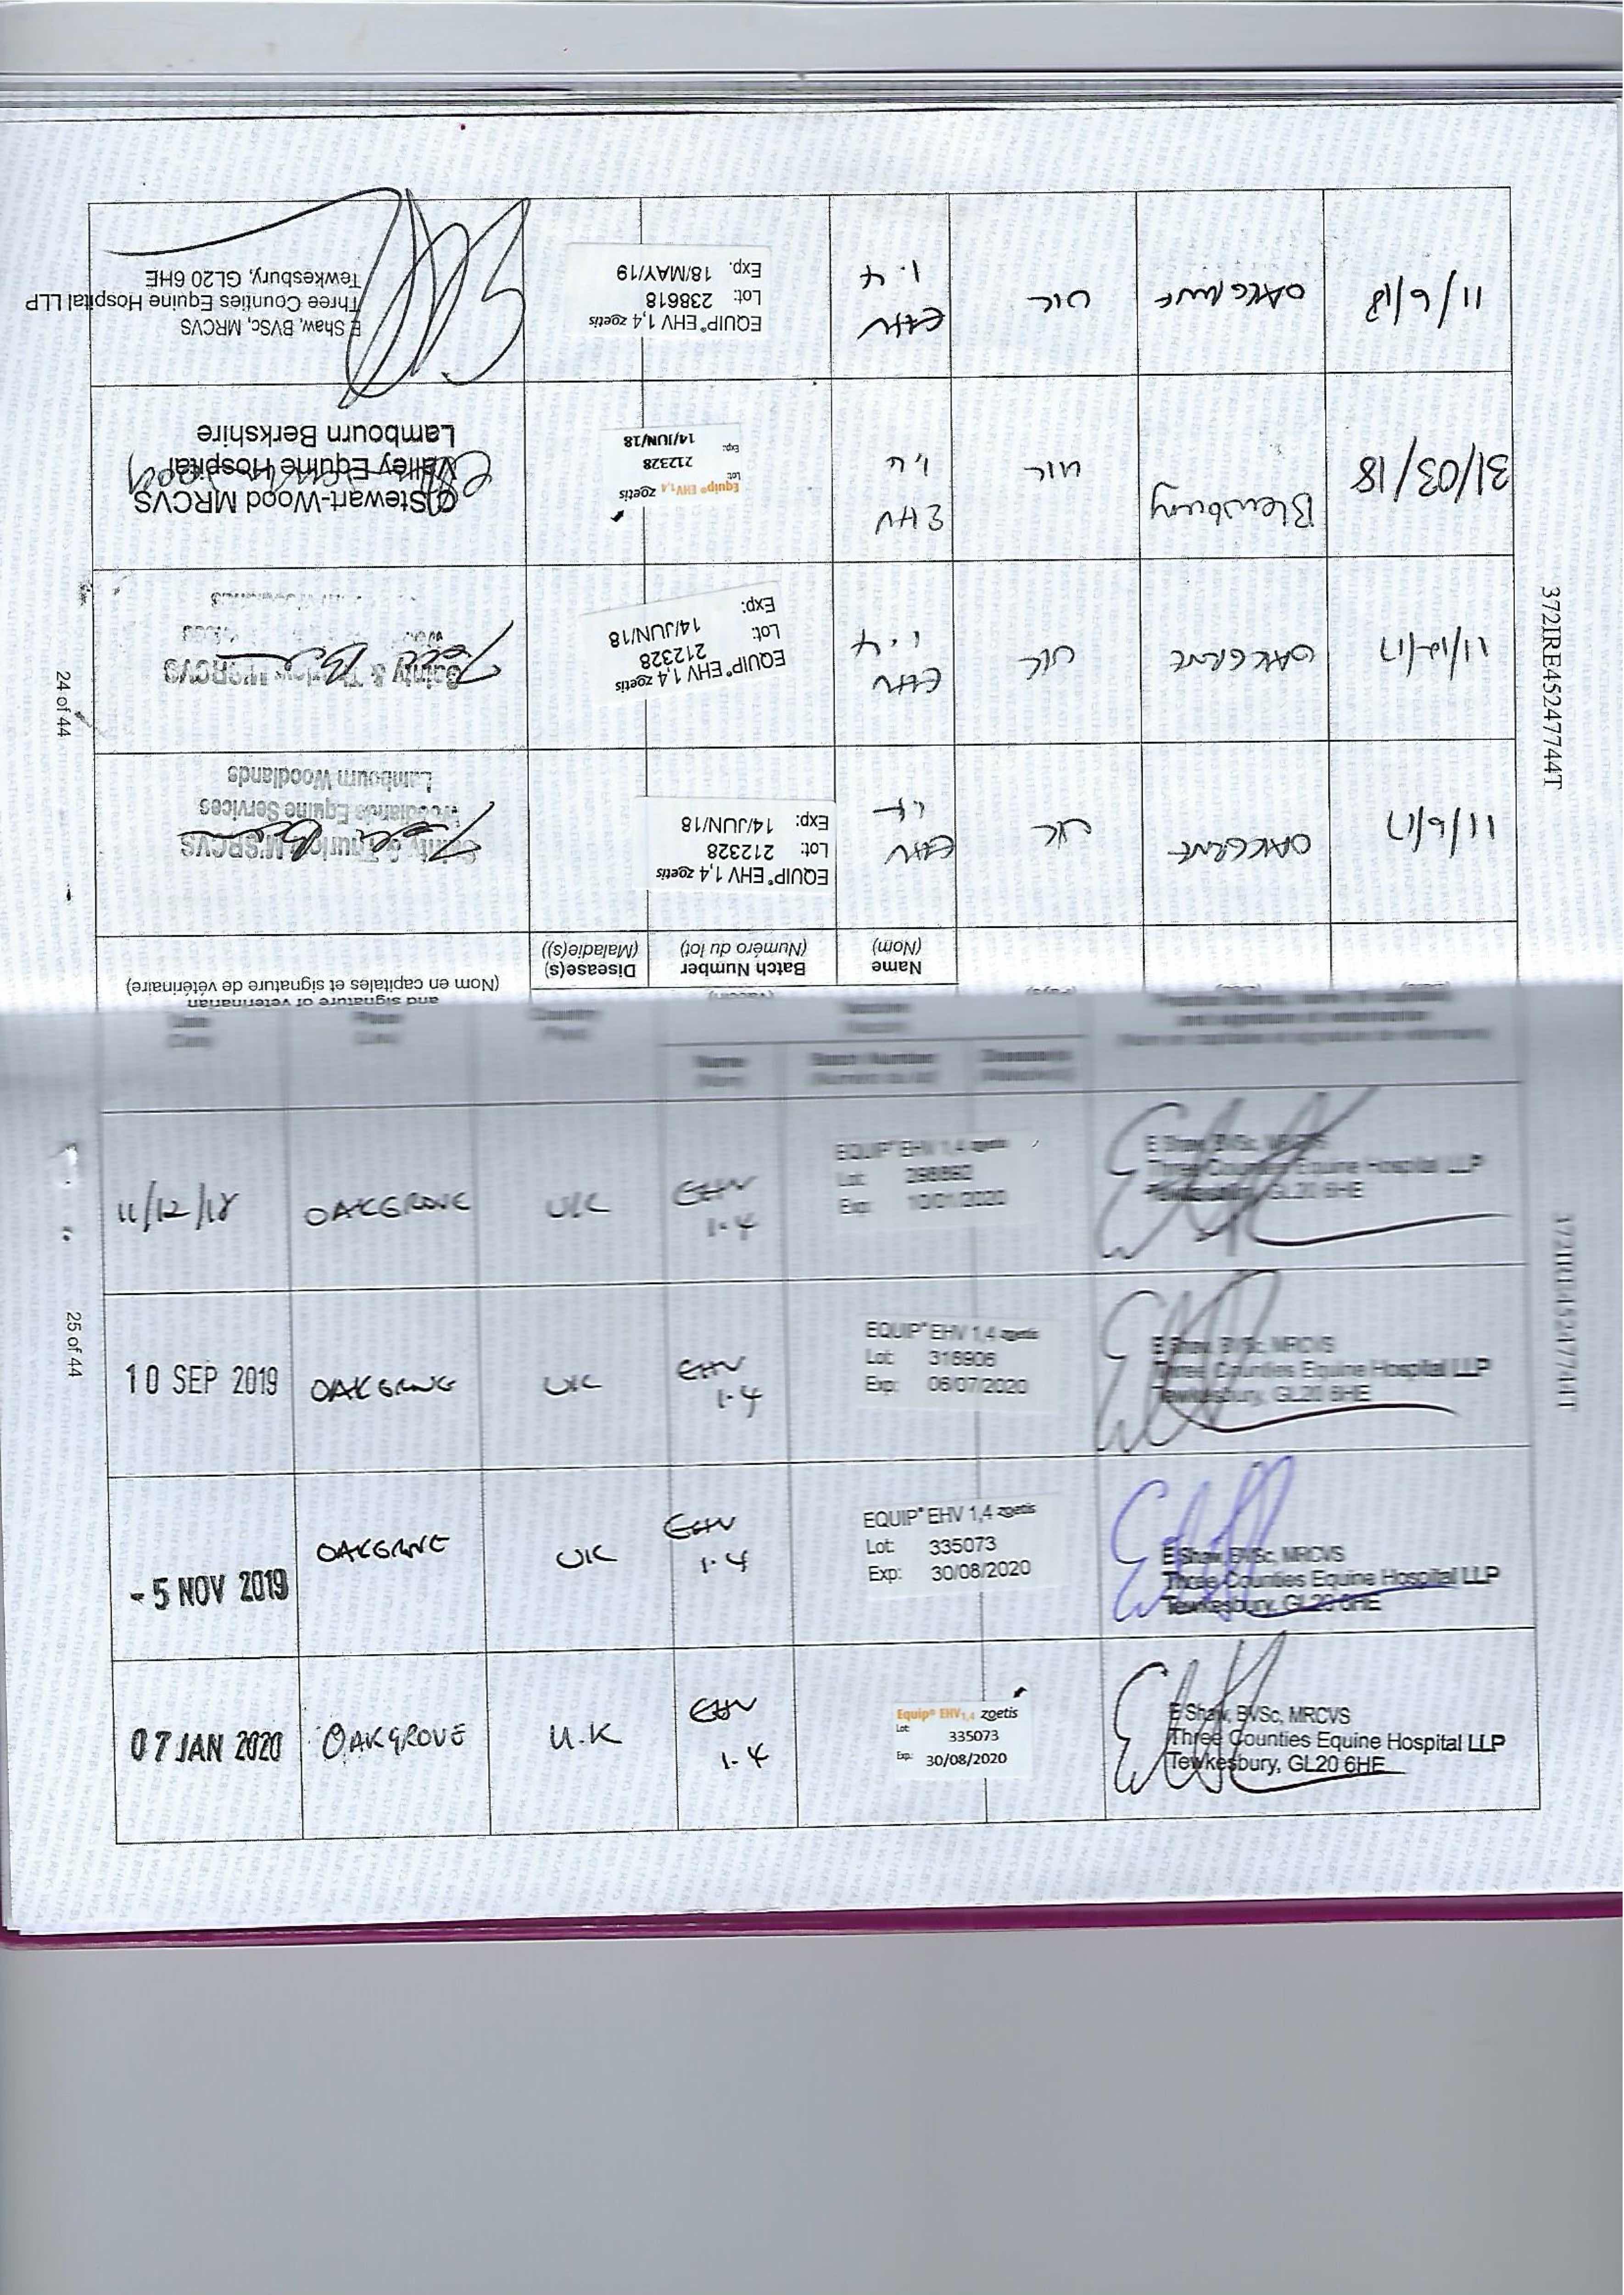 and signature of veterinarian
(Nom en capitales et signature de vétérinaire)
Name
(Nom)
Batch Number
(Numéro du lot)
Disease(s)
(Maladie(s))
11/6/17
OAKGROVE
UK
EHV
1.4
EQUIP® EHV 1,4 zoetis
Lot: 212328
Exp: 14/JUN/18
Woodlands Equine Services
Lambourn Woodlands
11/12/17
OAKGROVE
UK
EHV
1.4
EQUIP® EHV 1,4 zoetis
Lot: 212328
Exp: 14/JUN/18
31/03/18
Blewbury
UK
EHV
1,4
Equip® EHV1,4 zoetis
Lot: 212328
Exp: 14/JUN/18
C Stewart-Wood MRCVS
Valley Equine Hospital
Lambourn Berkshire
11/6/18
OAKGROVE
UK
EHV
1.4
EQUIP® EHV 1,4 zoetis
Lot: 238618
Exp. 18/MAY/19
E Shaw, BVSc, MRCVS
Three Counties Equine Hospital LLP
Tewkesbury, GL20 6HE
24 of 44
372IRE45247744T
Name
Batch Number
11/12/18
OAKGROVE
UK
EHV
1.4
EQUIP® EHV 1,4 zoetis
Lot:
Exp: 10/01/2020
E Shaw, BVSc, MRCVS
Three Counties Equine Hospital LLP
Tewkesbury, GL20 6HE
10 SEP 2019
OAKGROVE
UK
EHV
1.4
EQUIP® EHV 1,4 zoetis
Lot: 316906
Exp: 06/07/2020
E Shaw, BVSc, MRCVS
Three Counties Equine Hospital LLP
Tewkesbury, GL20 6HE
-5 NOV 2019
OAKGROVE
UK
EHV
1.4
EQUIP® EHV 1,4 zoetis
Lot: 335073
Exp: 30/08/2020
E Shaw, BVSc, MRCVS
Three Counties Equine Hospital LLP
Tewkesbury, GL20 6HE
07 JAN 2020
OAKGROVE
U.K
EHV
1.4
Equip® EHV1,4 zoetis
Lot: 335073
Exp: 30/08/2020
E Shaw, BVSc, MRCVS
Three Counties Equine Hospital LLP
Tewkesbury, GL20 6HE
25 of 44
372IRE45247744T